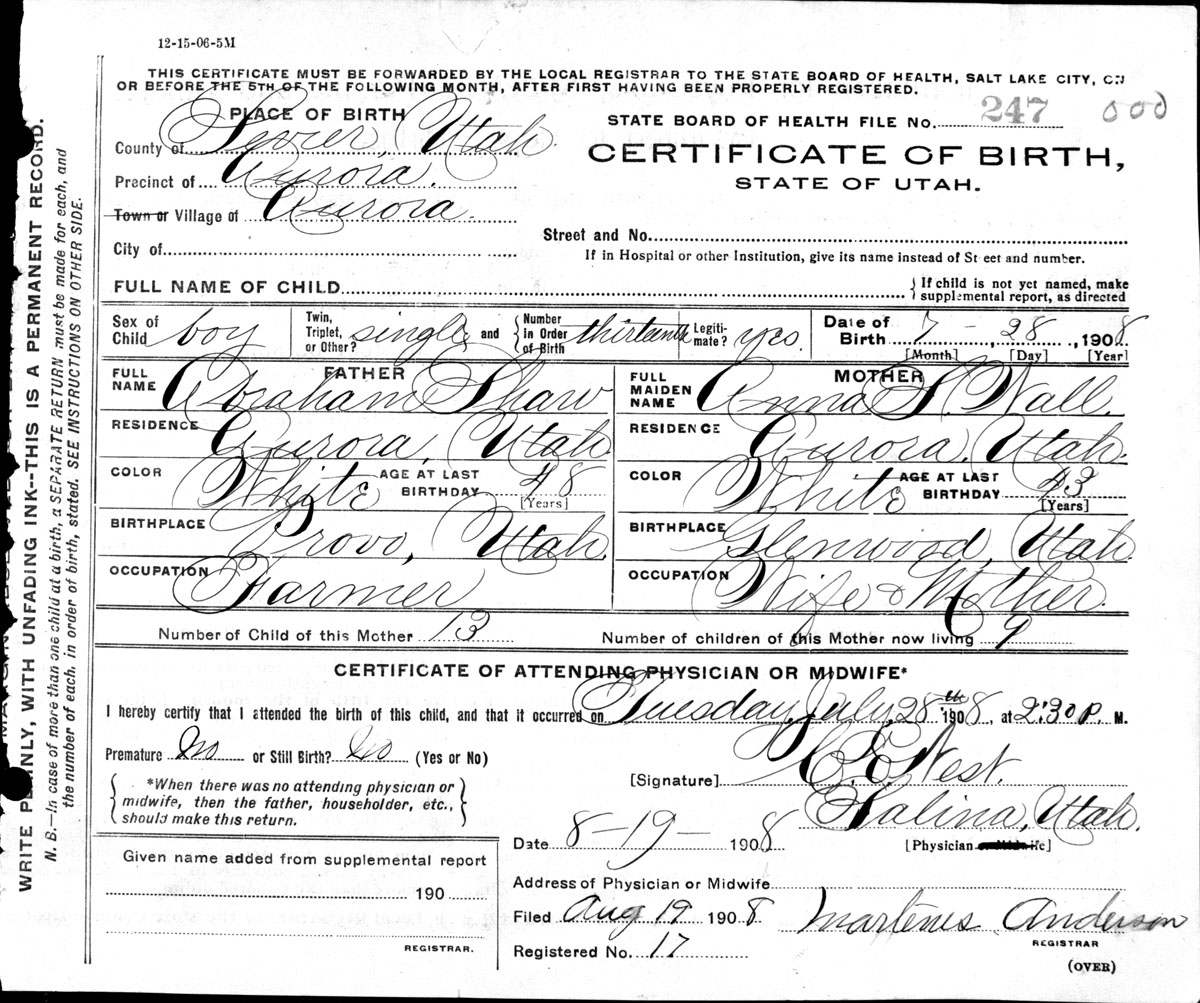 12-15-06-5M
THIS CERTIFICATE MUST BE FORWARDED BY THE LOCAL REGISTRAR TO THE STATE BOARD OF HEALTH, SALT LAKE CITY, ON
OR BEFORE THE 5TH OF THE FOLLOWING MONTH, AFTER FIRST HAVING BEEN PROPERLY REGISTERED.
PLACE OF BIRTH
County of Sevier, Utah
Precinct of Aurora.
Town or Village of Aurora.
City of
STATE BOARD OF HEALTH FILE No. 247
CERTIFICATE OF BIRTH,
STATE OF UTAH.
Street and No.
If in Hospital or other Institution, give its name instead of Street and number.
FULL NAME OF CHILD
If child is not yet named, make
supplemental report, as directed
Sex of Child boy
Twin, Triplet, or Other? single and Number in Order of Birth thirteenth
Legitimate? yes.
Date of Birth 7 - 28, 1908
[Month] [Day] [Year]
FATHER
FULL NAME Abraham Shaw
RESIDENCE Aurora, Utah
COLOR White AGE AT LAST BIRTHDAY 48
[Years]
BIRTHPLACE Provo, Utah.
OCCUPATION Farmer
MOTHER
FULL MAIDEN NAME Anna S. Wall.
RESIDENCE Aurora, Utah.
COLOR White AGE AT LAST BIRTHDAY 43
[Years]
BIRTHPLACE Glenwood, Utah.
OCCUPATION Wife & Mother.
Number of Child of this Mother 13
Number of children of this Mother now living 9
CERTIFICATE OF ATTENDING PHYSICIAN OR MIDWIFE*
I hereby certify that I attended the birth of this child, and that it occurred on Tuesday, July, 28th 1908, at 2:30 P. M.
Premature? No or Still Birth? No (Yes or No)
*When there was no attending physician or
midwife, then the father, householder, etc.,
should make this return.
[Signature] West.
Salina, Utah.
Date 8-19- 1908
[Physician or Midwife]
Given name added from supplemental report
190
REGISTRAR.
Address of Physician or Midwife
Filed Aug 19 1908
Martenes Anderson
REGISTRAR
Registered No. 17
(OVER)
WRITE PLAINLY, WITH UNFADING INK--THIS IS A PERMANENT RECORD.
N. B.—In case of more than one child at a birth, a SEPARATE RETURN must be made for each, and
the number of each, in order of birth, stated. SEE INSTRUCTIONS ON OTHER SIDE.